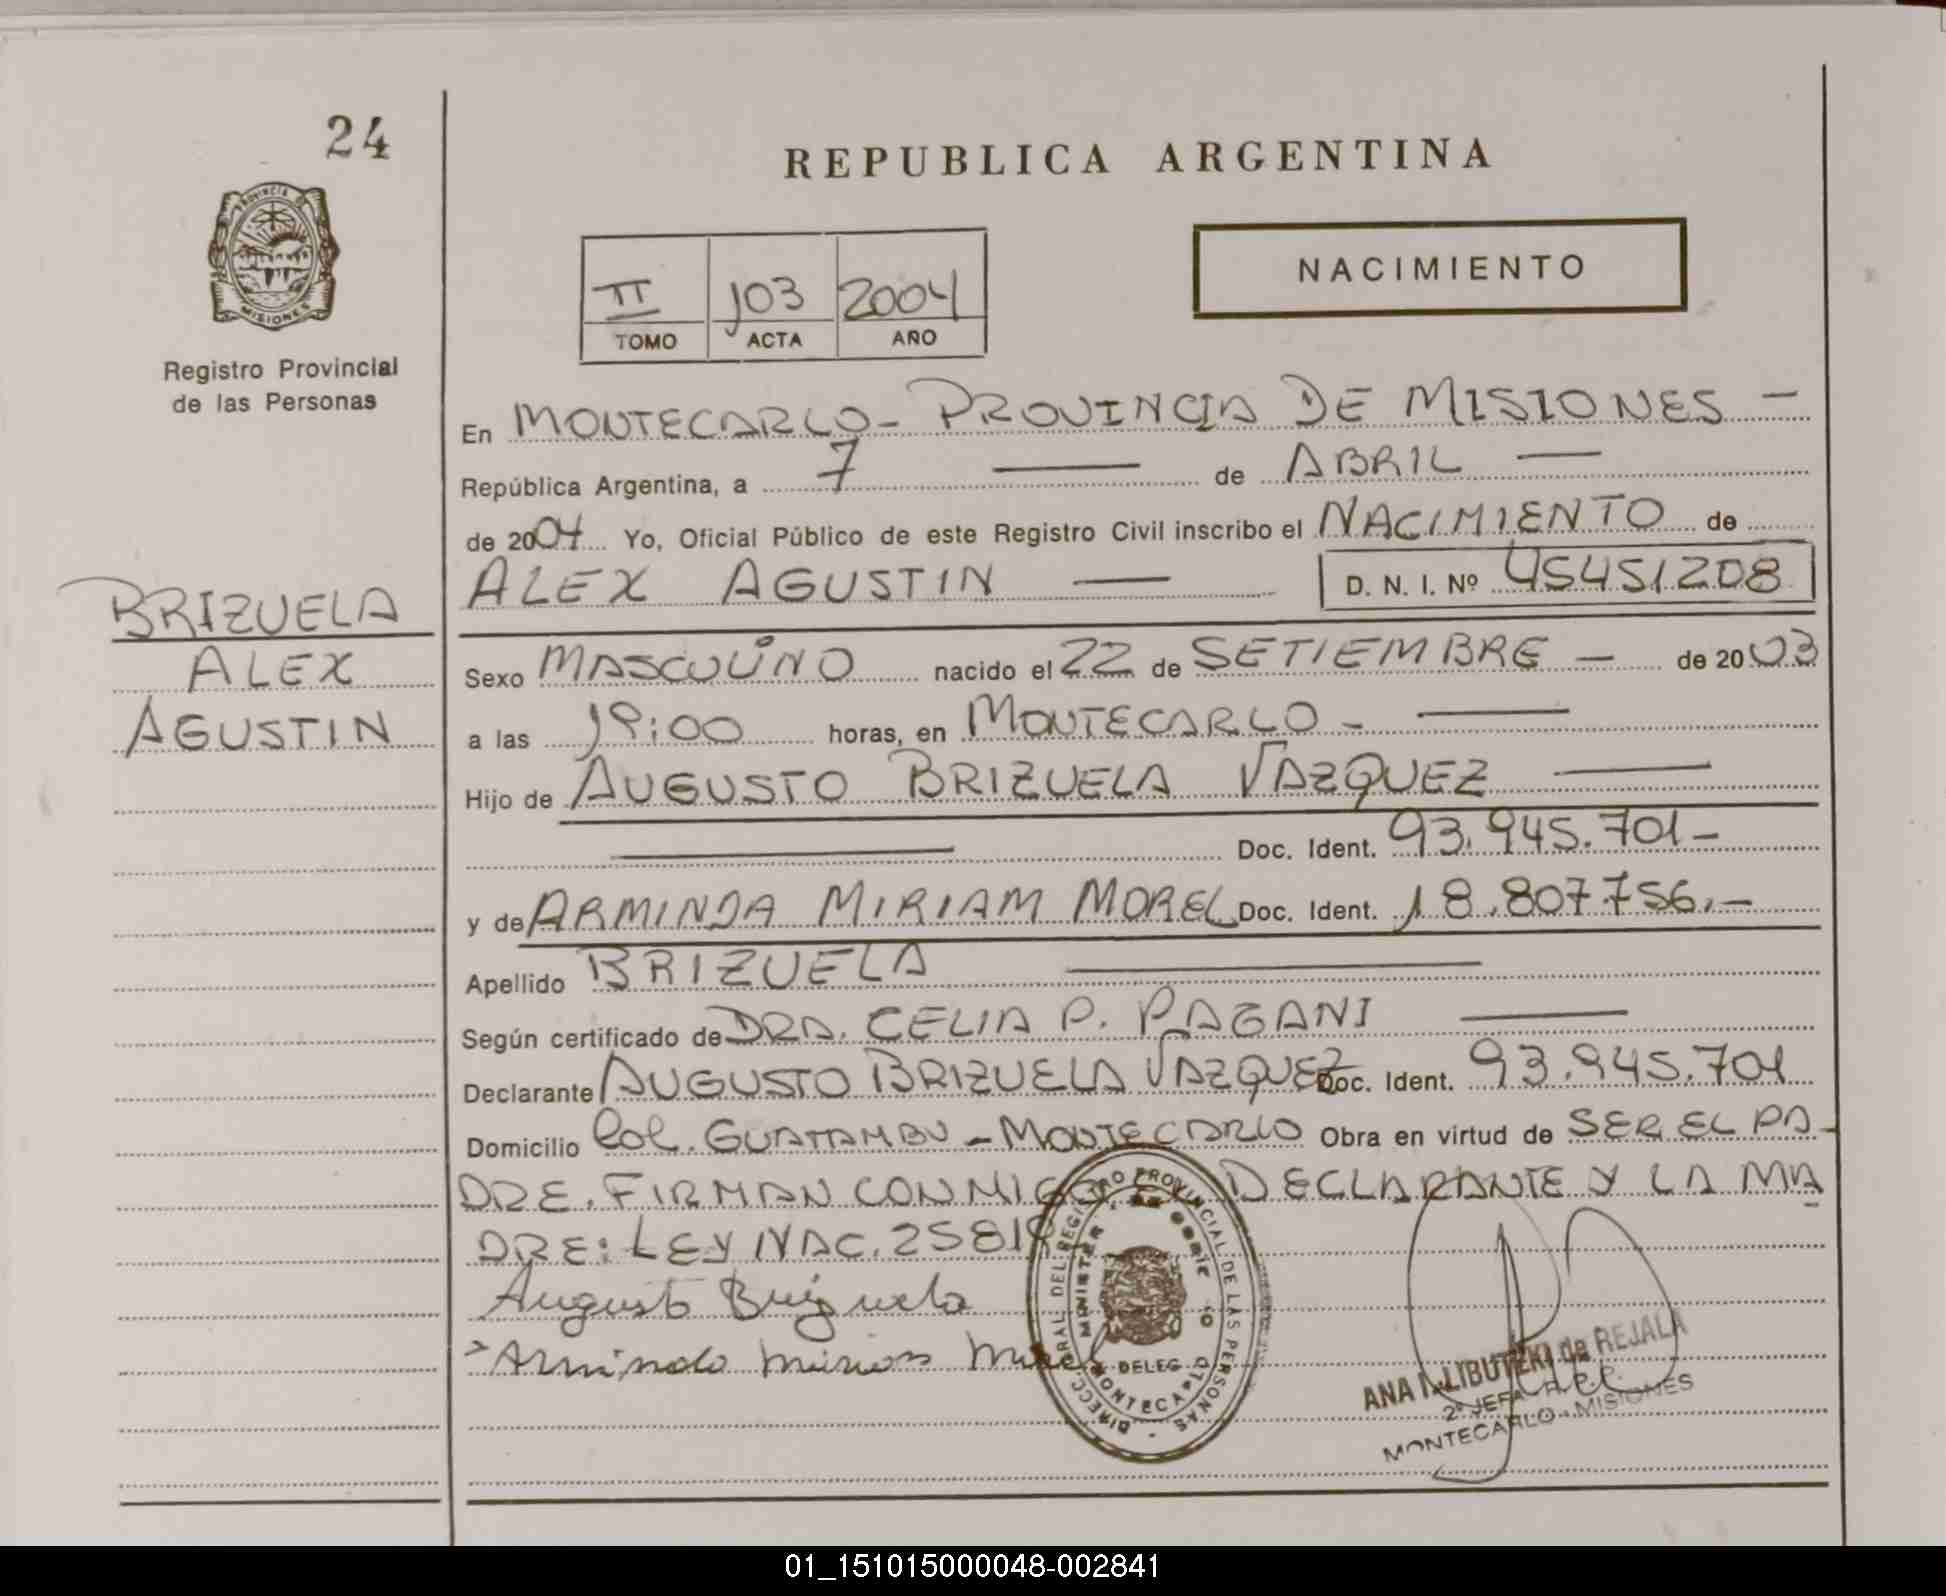 24
PROVINCIA DE
MISIONES
Registro Provincial
de las Personas
BRIZUELA
ALEX
AGUSTIN
REPUBLICA ARGENTINA
II 103 2004
TOMO ACTA AÑO
NACIMIENTO
En MONTECARLO - PROVINCIA DE MISIONES -
República Argentina, a 7 — de ABRIL —
de 2004 Yo, Oficial Público de este Registro Civil inscribo el NACIMIENTO de
ALEX AGUSTIN — D. N. I. Nº 45451208
Sexo MASCULINO nacido el 22 de SETIEMBRE — de 2003
a las 19:00 horas, en MONTECARLO - —
Hijo de AUGUSTO BRIZUELA VAZQUEZ —
— Doc. Ident. 93.945.701-
y de ARMINDA MIRIAM MOREL Doc. Ident. 18.807.756.-
Apellido BRIZUELA —
Según certificado de DRA. CELIA P. PAGANI —
Declarante AUGUSTO BRIZUELA VAZQUEZ Doc. Ident. 93.945.701
Domicilio Col. GUATAMBU - MONTECARLO Obra en virtud de SER EL PA-
DRE. FIRMAN CONMIGO EL DECLARANTE Y LA MA
DRE: LEY NAC. 25819
Augusto Brizuela
Arminda Miriam Morel
DIRECC. GRAL. DEL REGISTRO PROVINCIAL DE LAS PERSONAS -
DELEG
MONTECARLO
ANA I. LIBUTZKI de REJALA
2ª JEFA R. P. P.
MONTECARLO - MISIONES
01_151015000048-002841